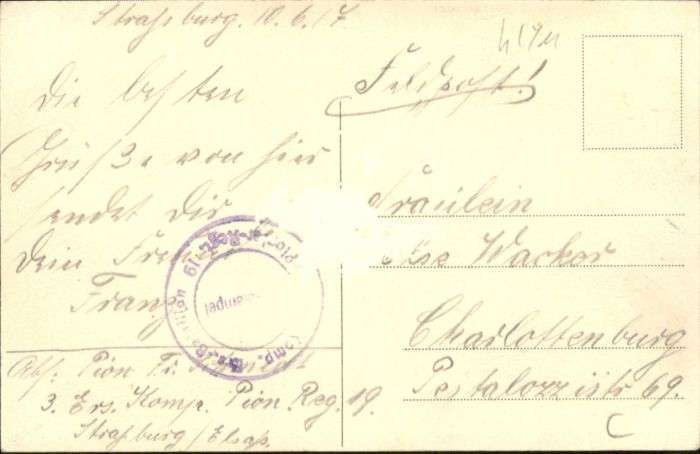 Straßburg. 10.6.17
Die besten
Grüße von hier
sendet Dir
Dein
Franz
Abs: Pion
3. Ers. Komp. Pion. Reg. 19.
Straßburg/Elsaß.
Feldpost!
Fräulein
Charlottenburg
Pestalozzistr 69.